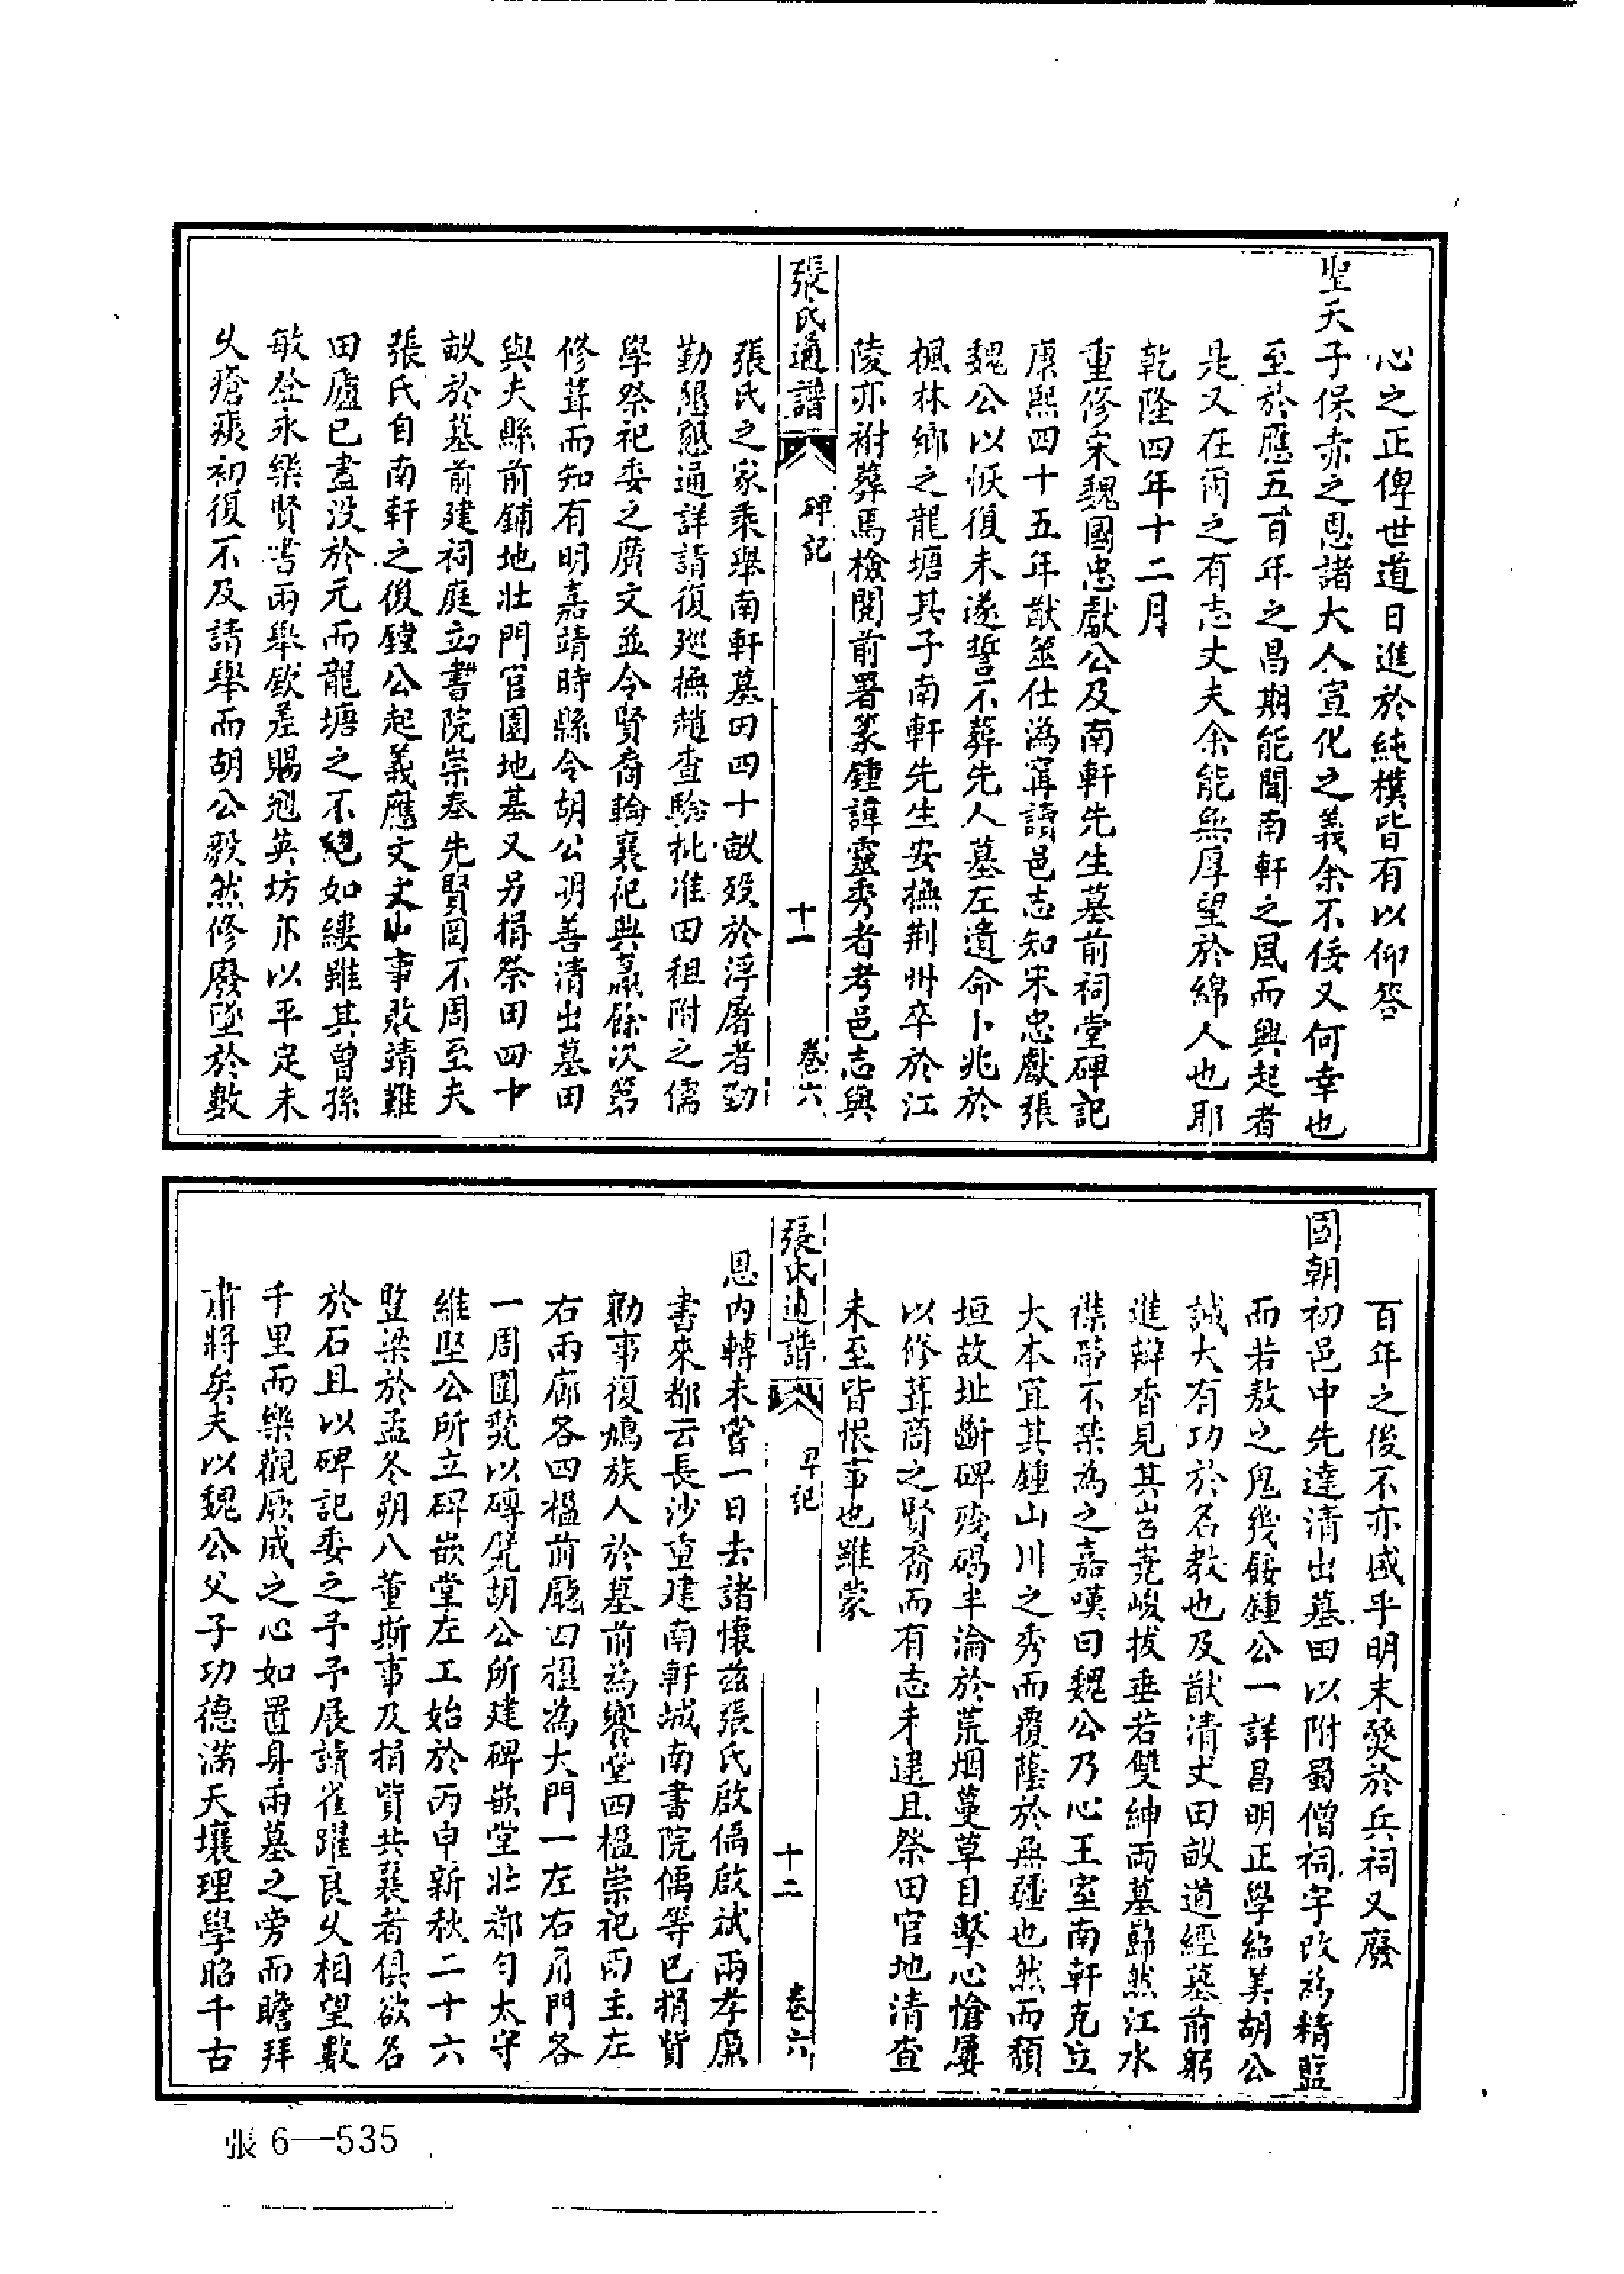 心之正俾世道日進於純樸皆有以仰答
聖天子保赤之恩諸大人宣化之義余不佞又何幸也
至於應五百年之昌期能聞南軒之風而興起者
是又在爾之有志丈夫余能無厚望於綿人也耶
乾隆四年十二月
重修宋魏國忠獻公及南軒先生墓前祠堂碑記
康熙四十五年猷筮仕為甯讀邑志知宋忠獻張
魏公以恢復未遂誓不葬先人墓左遺命卜兆於
楓林鄉之龍塘其子南軒先生安撫荆州卒於江
陵亦祔葬焉檢閱前署篆鍾諱靈秀者考邑志與
張氏通譜 碑記 十一 卷六
張氏之家乘舉南軒墓田四十畝歿於浮屠者勤
勤懇懇通詳請復廵撫趙查騐批准田租附之儒
學祭祀委之廣文並令賢裔輪襄祀典羸餘次第
修葺而知有明嘉靖時縣令胡公明善清出墓田
與夫縣前鋪地壯門官園地基又另捐祭田四十
畝於墓前建祠庭立書院崇奉先賢罔不周至夫
張氏自南軒之後鏜公起義應文文山事敗靖難
田廬已盡没於元而龍塘之不絕如縷雖其曾孫
敏登永樂賢書兩舉欽差賜冠英坊亦以平定未
久瘡痍初復不及請舉而胡公毅然修廢墜於數
百年之後不亦盛乎明末燹於兵祠又廢
國朝初邑中先達清出墓田以附蜀僧祠宇改為精藍
而若敖之鬼幾餒鍾公一詳昌明正學紹美胡公
誠大有功於名教也及猷清丈田畝道經墓前躬
進瓣香見其岧嶤峻拔垂若雙紳兩墓巋然江水
襟帶不禁為之嘉嘆曰魏公乃心王室南軒克立
大本宜其鍾山川之秀而覆蔭於無疆也然而頹
垣故址斷碑殘碣半淪於荒烟蔓草目擊心愴屢
以修葺商之賢裔而有志未逮且祭田官地清查
未至皆恨事也雖蒙
張氏通譜 記 十二 卷六
恩内轉未嘗一日去諸懷茲張氏啟偁啟斌兩孝廉
書來都云長沙重建南軒城南書院偁等已捐貲
勷事復鳩族人於墓前為饗堂四楹崇祀兩主左
右兩廊各四楹前廳四楹為大門一左右角門各
一周圍甃以磚甓胡公所建碑嵌堂北鄰匀太守
維堅公所立碑嵌堂左工始於丙申新秋二十六
豎梁於孟冬朔八董斯事及捐貲共襄者俱欲名
於石且以碑記委之予予展讀雀躍良久相望數
千里而樂觀厥成之心如置身兩墓之旁而瞻拜
肅將矣夫以魏公父子功德滿天壤理學昭千古
張6—535